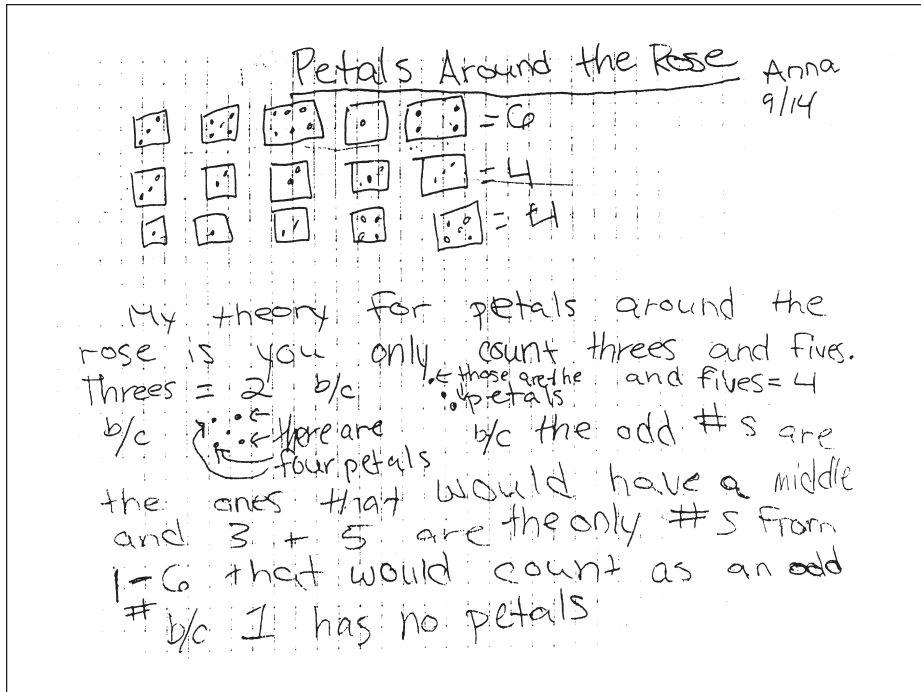 Petals Around the Rose
Anna
9/14
= 6
= 4
= 4
My theory for petals around the
rose is you only count threes and fives.
Threes = 2 b/c ← those are the petals and fives = 4
b/c ← there are four petals b/c the odd #s are
the ones that would have a middle
and 3 + 5 are the only #s from
1-6 that would count as an odd
# b/c 1 has no petals